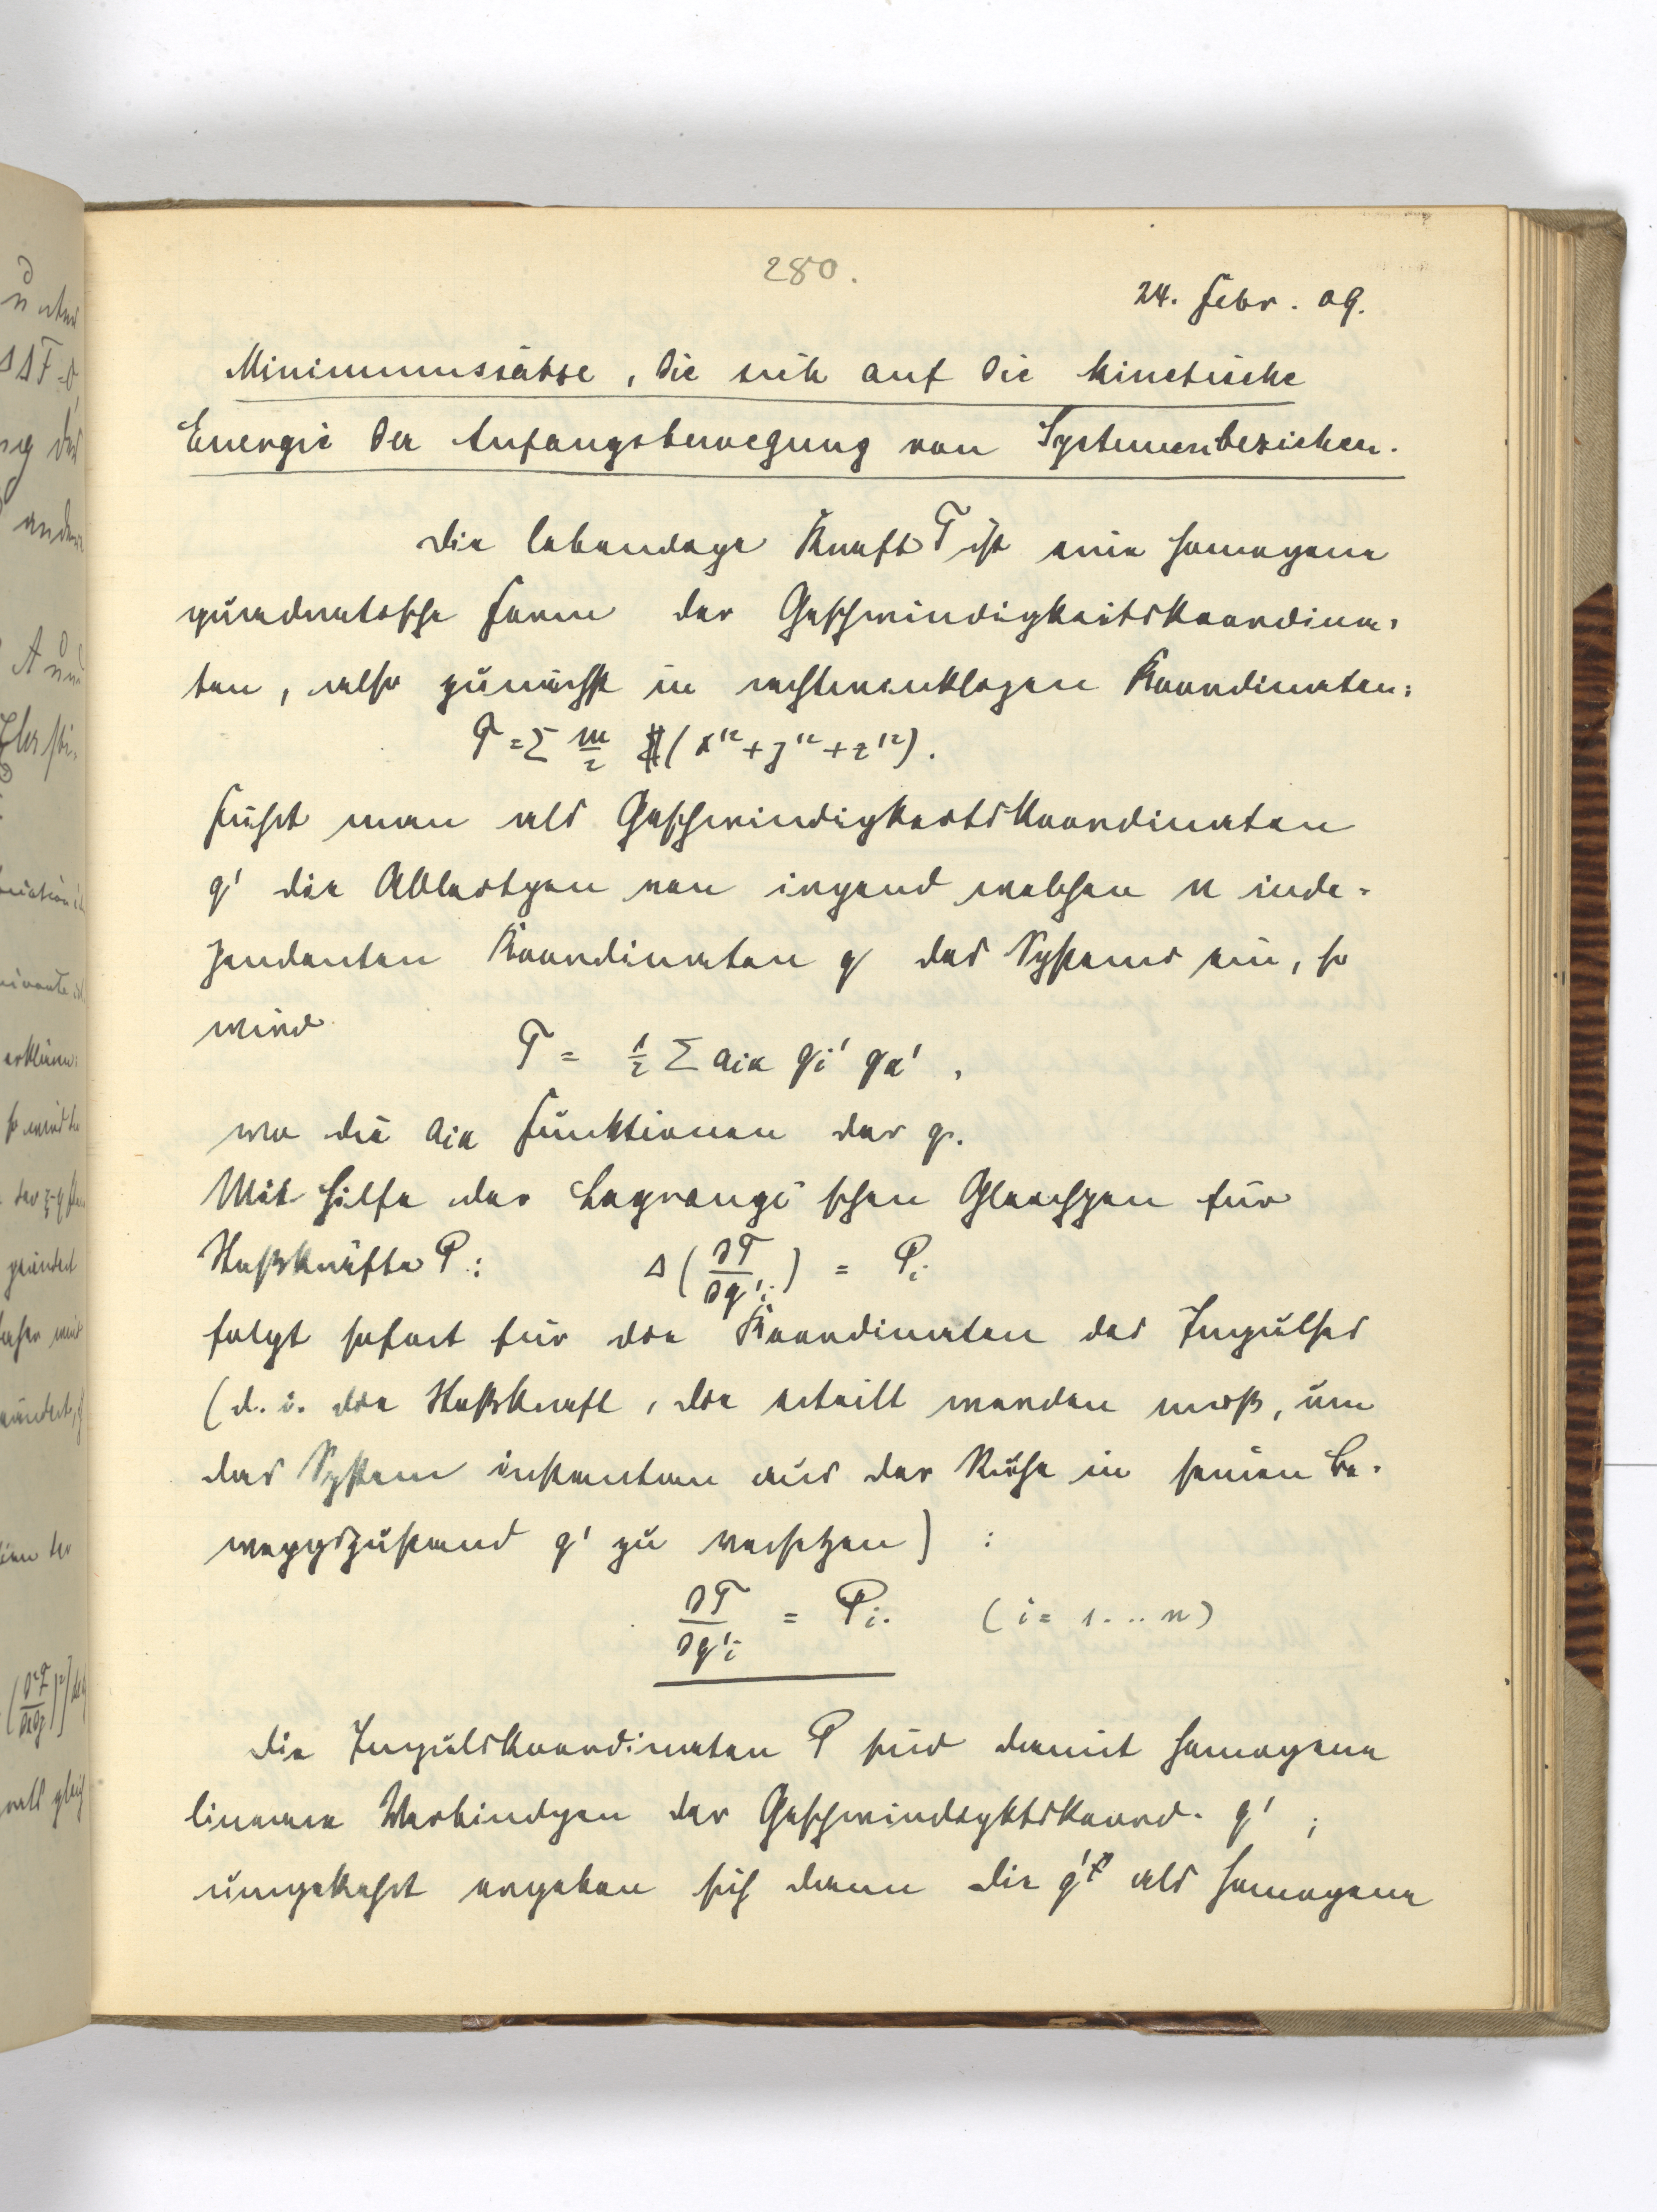 280.
24. Febr. 09.
Minimumssätze, die sich auf die kinetische
Energie der Anfangsbewegung von Systemen beziehen.
Die lebendige Kraft T ist eine homogene
quadratische Form der Geschwindigkeitskoordina-
ten, also zunächst in rechtwinkligen Koordinaten:
T = Σ m/2 (x'² + y'² + z'²).
Führt man als Geschwindigkeitskoordinaten
q' die Ableitgen von irgend welchen n inde-
pendenten Koordinaten q des Systems ein, so
wird
T = 1/2 Σ aiκ qi' qκ',
wo die aiκ Funktionen der q.
Mit Hilfe der Lagrange'schen Gleichgen für
Stoßkräfte P: Δ(∂T/∂q'i) = Pi
folgt sofort für die Koordinaten des Impulses
(d. i. die Stoßkraft, die erteilt werden muß, um
das System instantan aus der Ruhe in seinen Be-
weggszustand q' zu versetzen) :
∂T/∂q'i = Pi. (i = 1...n)
Die Impulskoordinaten P sind damit homogene
lineare Verbindgen der Geschwindigktskoord. q';
umgekehrt ergeben sich dann die q' als homogene